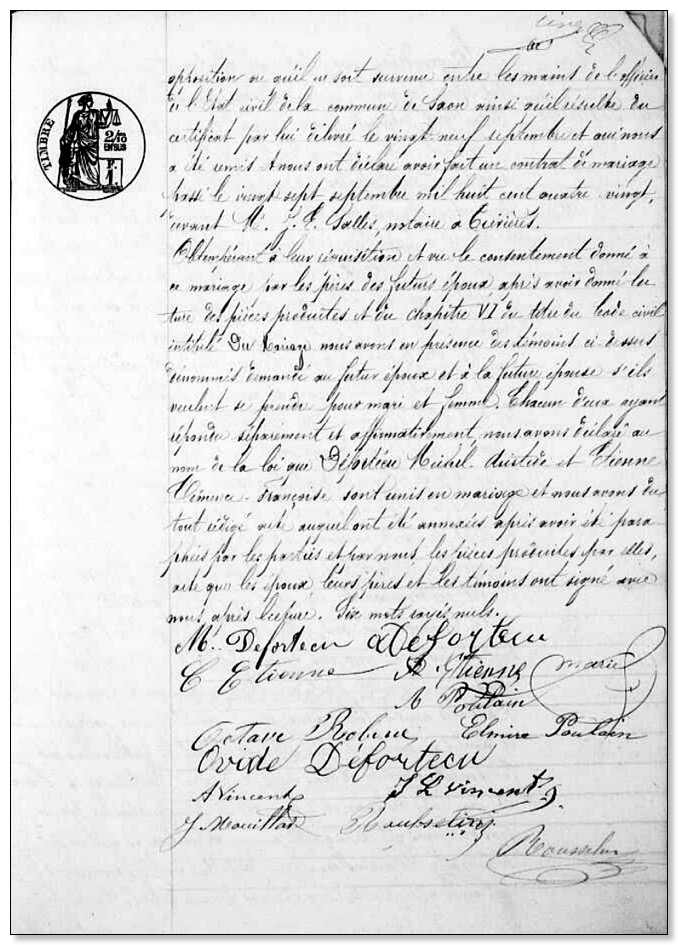 cinq
TIMBRE
2/10
EN SUS
F.
1
opposition ou qu'il en soit survenu entre les mains de l'officier
de l'Etat civil de la commune de Saon ainsi qu'il résulte du
certificat par lui délivré le vingt-neuf septembre et qui nous
a été remis & nous ont déclaré avoir fait un contrat de mariage
passé le vingt sept septembre mil huit cent quatre-vingt,
devant M. J. F. Salles, notaire à Trévières.
Obtempérant à leur réquisition et vu le consentement donné à
ce mariage par les pères des futurs époux, après avoir donné lec
ture des pièces produites et du chapitre VI du titre du Code civil
intitulé Du Mariage nous avons en présence des témoins ci-dessus
dénommés demandé au futur époux et à la future épouse s'ils
veulent se prendre pour mari et femme. Chacun d'eux ayant
répondu séparément et affirmativement, nous avons déclaré au
nom de la loi que Déforteau Michel Aristide et Etienne
Clémence-Françoise sont unis en mariage et nous avons du
tout rédigé acte auquel ont été annexées après avoir été para-
phées par les parties et par nous, les pièces produites par elles,
acte que les époux leurs pères et les témoins ont signé avec
nous, après lecture. Six mots rayés nuls.
M. Deforteau Deforteau
C Etienne A Etienne marie
A Poulain
Octave Elmire Poulain
Ovide Déforteau
A Vincent J L Vincent
J Mouillard
Rousselin